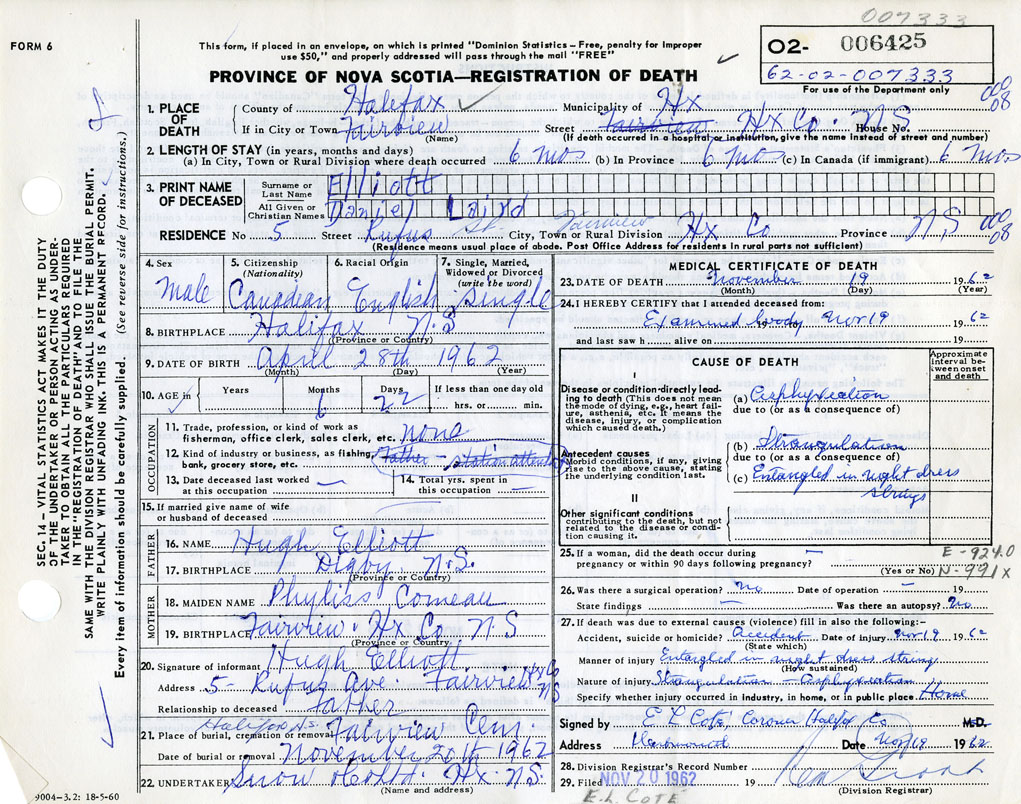 007333
FORM 6
This form, if placed in an envelope, on which is printed "Dominion Statistics – Free, penalty for improper
use $50," and properly addressed will pass through the mail "FREE"
PROVINCE OF NOVA SCOTIA—REGISTRATION OF DEATH
O2- 006425
62-02-007333
For use of the Department only
SEC. 14 – VITAL STATISTICS ACT MAKES IT THE DUTY
OF THE UNDERTAKER OR PERSON ACTING AS UNDER-
TAKER TO OBTAIN ALL THE PARTICULARS REQUIRED
IN THE "REGISTRATION OF DEATH" AND TO FILE THE
SAME WITH THE DIVISION REGISTRAR WHO SHALL ISSUE THE BURIAL PERMIT.
WRITE PLAINLY WITH UNFADING INK. THIS IS A PERMANENT RECORD.
Every item of information should be carefully supplied. (See reverse side for instructions.)
1. PLACE OF DEATH County of Halifax Municipality of Hx
If in City or Town Fairview Street Fairview Hx Co. N S House No.
(Name) (If death occurred in a hospital or institution, give the name instead of street and number)
008
2. LENGTH OF STAY (in years, months and days)
(a) In City, Town or Rural Division where death occurred 6 mos (b) In Province 6 mos (c) In Canada (if immigrant) 6 mos
3. PRINT NAME OF DECEASED Surname or Last Name Elliott
All Given or Christian Names Daniel Laird
RESIDENCE No 5 Street Rufus St. Fairview City, Town or Rural Division Hx Co Province N.S. 008
(Residence means usual place of abode. Post Office Address for residents in rural parts not sufficient)
4. Sex Male
5. Citizenship (Nationality) Canadian
6. Racial Origin English
7. Single, Married, Widowed or Divorced (write the word) Single
8. BIRTHPLACE Halifax N.S
(Province or Country)
9. DATE OF BIRTH April 28th 1962
(Month) (Day) (Year)
10. AGE in Years Months 6 Days 22 If less than one day old hrs. or min.
OCCUPATION
11. Trade, profession, or kind of work as
fisherman, office clerk, sales clerk, etc. none
12. Kind of industry or business, as fishing,
bank, grocery store, etc. Father – station attendant
13. Date deceased last worked at this occupation —
14. Total yrs. spent in this occupation —
15. If married give name of wife
or husband of deceased
FATHER
16. NAME Hugh Elliott
17. BIRTHPLACE Digby N.S.
(Province or Country)
MOTHER
18. MAIDEN NAME Phyliss Comeau
19. BIRTHPLACE Fairview. Hx Co N S
(Province or Country)
20. Signature of informant Hugh Elliott
Address 5 – Rufus Ave. Fairview Hx Co NS
Relationship to deceased father
21. Place of burial, cremation or removal Halifax Ns. Fairview Cem.
Date of burial or removal November 20th 1962
22. UNDERTAKER Snow Hx. N.S.
(Name and address)
9004–3.2: 18-5-60
MEDICAL CERTIFICATE OF DEATH
23. DATE OF DEATH November 19 1962
(Month) (Day) (Year)
24. I HEREBY CERTIFY that I attended deceased from:
Examined body 19 Nov 19 1962
and last saw h alive on 19
CAUSE OF DEATH
Approximate interval between onset and death
I
Disease or condition directly leading to death (This does not mean the mode of dying, e.g., heart failure, asthenia, etc. It means the disease, injury, or complication which caused death.)
(a) Asphyxiation
due to (or as a consequence of)
Antecedent causes
Morbid conditions, if any, giving rise to the above cause, stating the underlying condition last.
(b) Strangulation
due to (or as a consequence of)
(c) Entangled in night dress
strings
II
Other significant conditions
contributing to the death, but not related to the disease or condition causing it.
25. If a woman, did the death occur during
pregnancy or within 90 days following pregnancy? —
(Yes or No)
E-924.0
N-991X
26. Was there a surgical operation? No Date of operation –
State findings – Was there an autopsy? No
27. If death was due to external causes (violence) fill in also the following:–
Accident, suicide or homicide? Accident Date of injury Nov 19 1962
(State which)
Manner of injury Entangled in night dress string
(How sustained)
Nature of injury Strangulation – Asphyxiation
Specify whether injury occurred in industry, in home, or in public place. Home
Signed by E L Coté Coroner Halifax Co M.D.
Address Date Nov 19 1962
28. Division Registrar's Record Number
29. Filed NOV 20 1962
(Division Registrar)
E.L. COTÉ